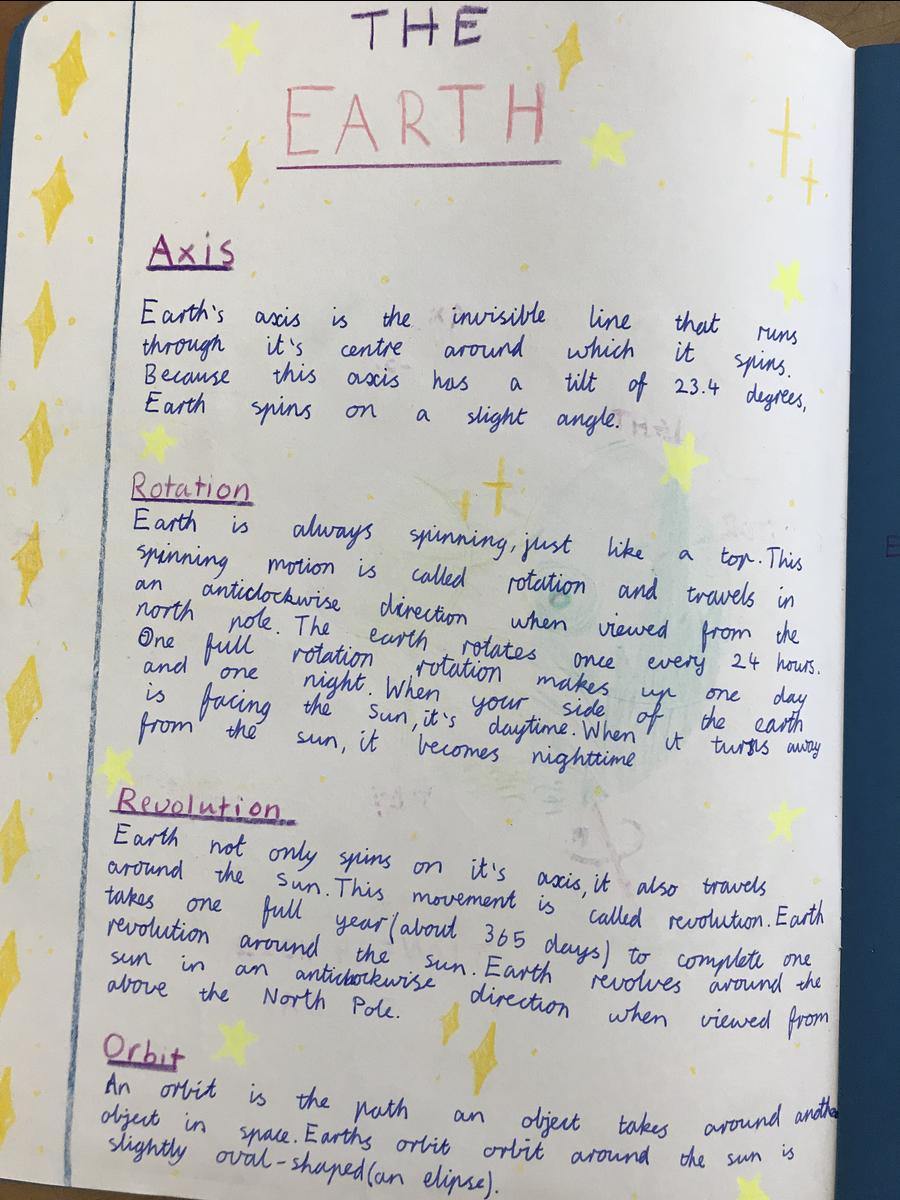 THE
EARTH
Axis
Earth's axis is the invisible line that runs
through it's centre around which it spins.
Because this axis has a tilt of 23.4 degrees,
Earth spins on a slight angle.
Rotation
Earth is always spinning, just like a top. This
spinning motion is called rotation and travels in
an anticlockwise direction when viewed from the
north pole. The earth rotates once every 24 hours.
One full rotation rotation makes up one day
and one night. When your side of the earth
is facing the sun, it's daytime. When it turns away
from the sun, it becomes nighttime
Revolution
Earth not only spins on it's axis, it also travels
around the sun. This movement is called revolution. Earth
takes one full year (about 365 days) to complete one
revolution around the sun. Earth revolves around the
sun in an anticlockwise direction when viewed from
above the North Pole.
Orbit
An orbit is the path an object takes around another
object in space. Earths orbit orbit around the sun is
slightly oval-shaped (an elipse).